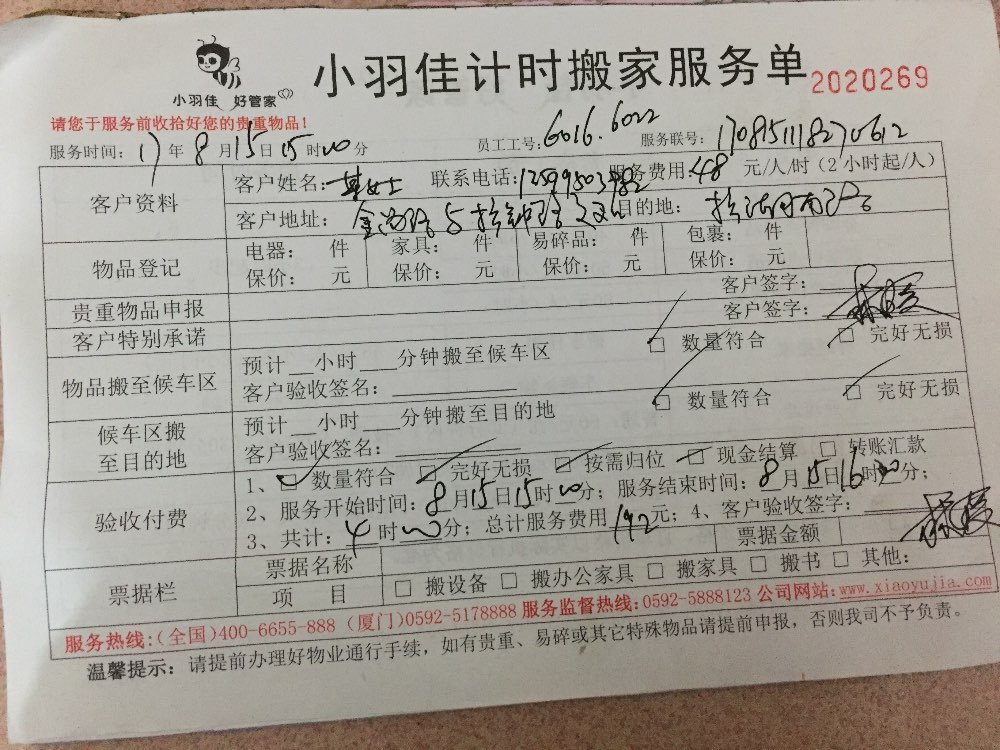 小羽佳 好管家
小羽佳计时搬家服务单 2020269
请您于服务前收拾好您的贵重物品！
服务时间：17年8月15日15时00分 员工工号：6016.6022 服务联号：
客户资料
客户姓名： 女士 联系电话： 服务费用：48元/人/时（2小时起/人）
客户地址： 目的地：
物品登记
电器： 件 家具： 件 易碎品： 件 包裹： 件
保价： 元 保价： 元 保价： 元 保价： 元
贵重物品申报 客户签字：
客户特别承诺 客户签字：
物品搬至候车区
预计__小时___分钟搬至候车区 数量符合 完好无损
客户验收签名：
候车区搬至目的地
预计__小时___分钟搬至目的地 数量符合 完好无损
客户验收签名：
验收付费
1、数量符合 完好无损 按需归位 现金结算 转账汇款
2、服务开始时间：8月15日15时00分；服务结束时间：8月15日16时00分；
3、共计：4时00分；总计服务费用192元；4、客户验收签字：
票据栏
票据名称 票据金额
项 目 搬设备 搬办公家具 搬家具 搬书 其他：
服务热线：(全国)400-6655-888 (厦门)0592-5178888 服务监督热线：0592-5888123 公司网站：www.xiaoyujia.com
温馨提示：请提前办理好物业通行手续，如有贵重、易碎或其它特殊物品请提前申报，否则我司不予负责。